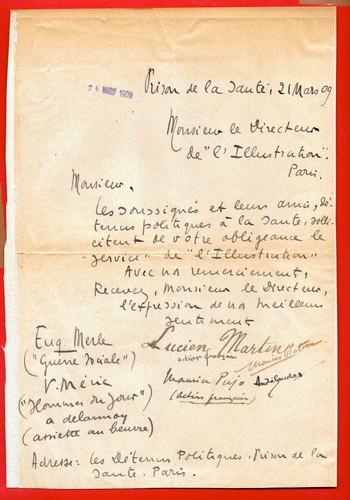 Prison de la Santé, 21 Mars 09
24 MARS 1909
Monsieur le Directeur
de "l'Illustration".
Paris.
Monsieur.
Les soussignés et leurs amis, dé-
tenus politiques à la Santé, solli-
citent de votre obligeance le
"service" de "l'Illustration"
Avec nos remerciement,
Recevez, Monsieur le Directeur,
l'expression de nos meilleurs
sentiment
Eug Merle
("Guerre Sociale")
V. Méric
("Hommes du Jour")
a delannoy
(assiette au beurre)
Lucien Martin
action française
Maurice Pujo
(action française)
Adresse: Les Détenus Politiques. Prison de la
Santé. Paris.